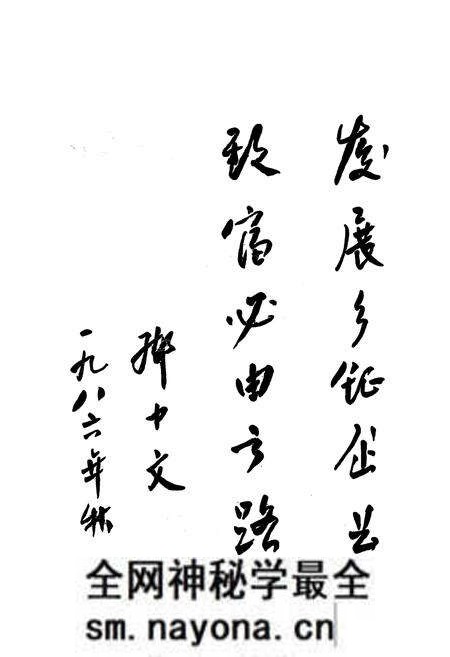 发展乡镇企业
致富必由之路
中文
一九八六年秋
全网神秘学最全
sm.nayona.cn